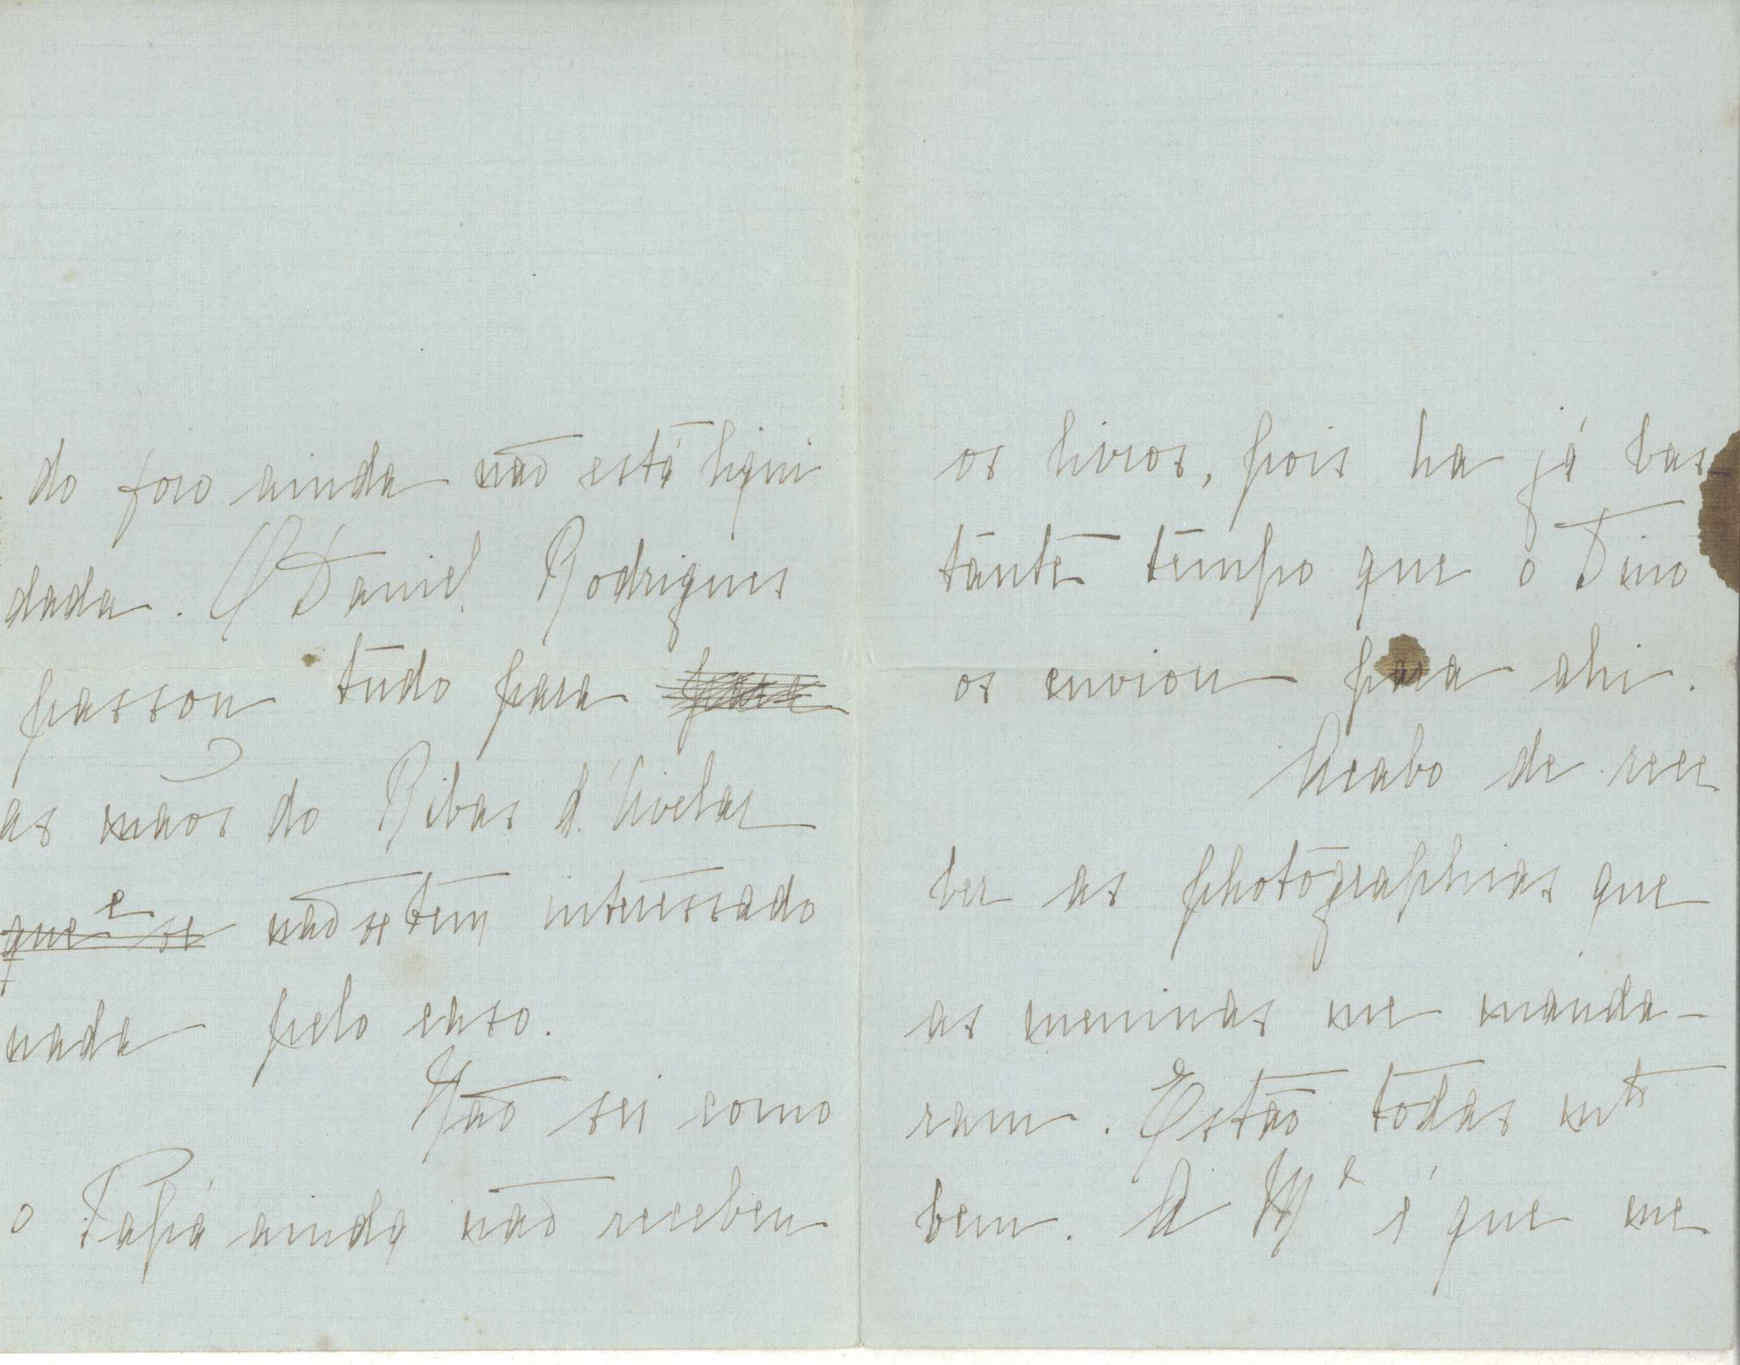 do foro ainda não está liqui
dada. O Daniel Rodrigues
passou tudo para
as mãos do Ribas d'Avelar
que e se não se tem interessado
nada pelo caso.
Não sei como
o Papá ainda não recebeu
os livros, pois ha já bas-
tante tempo que o Tino
os enviou para ahi.
Acabo de rece
ber as photographias que
as meninas me manda-
ram. Estão todas mts
bem. A Ma é que me